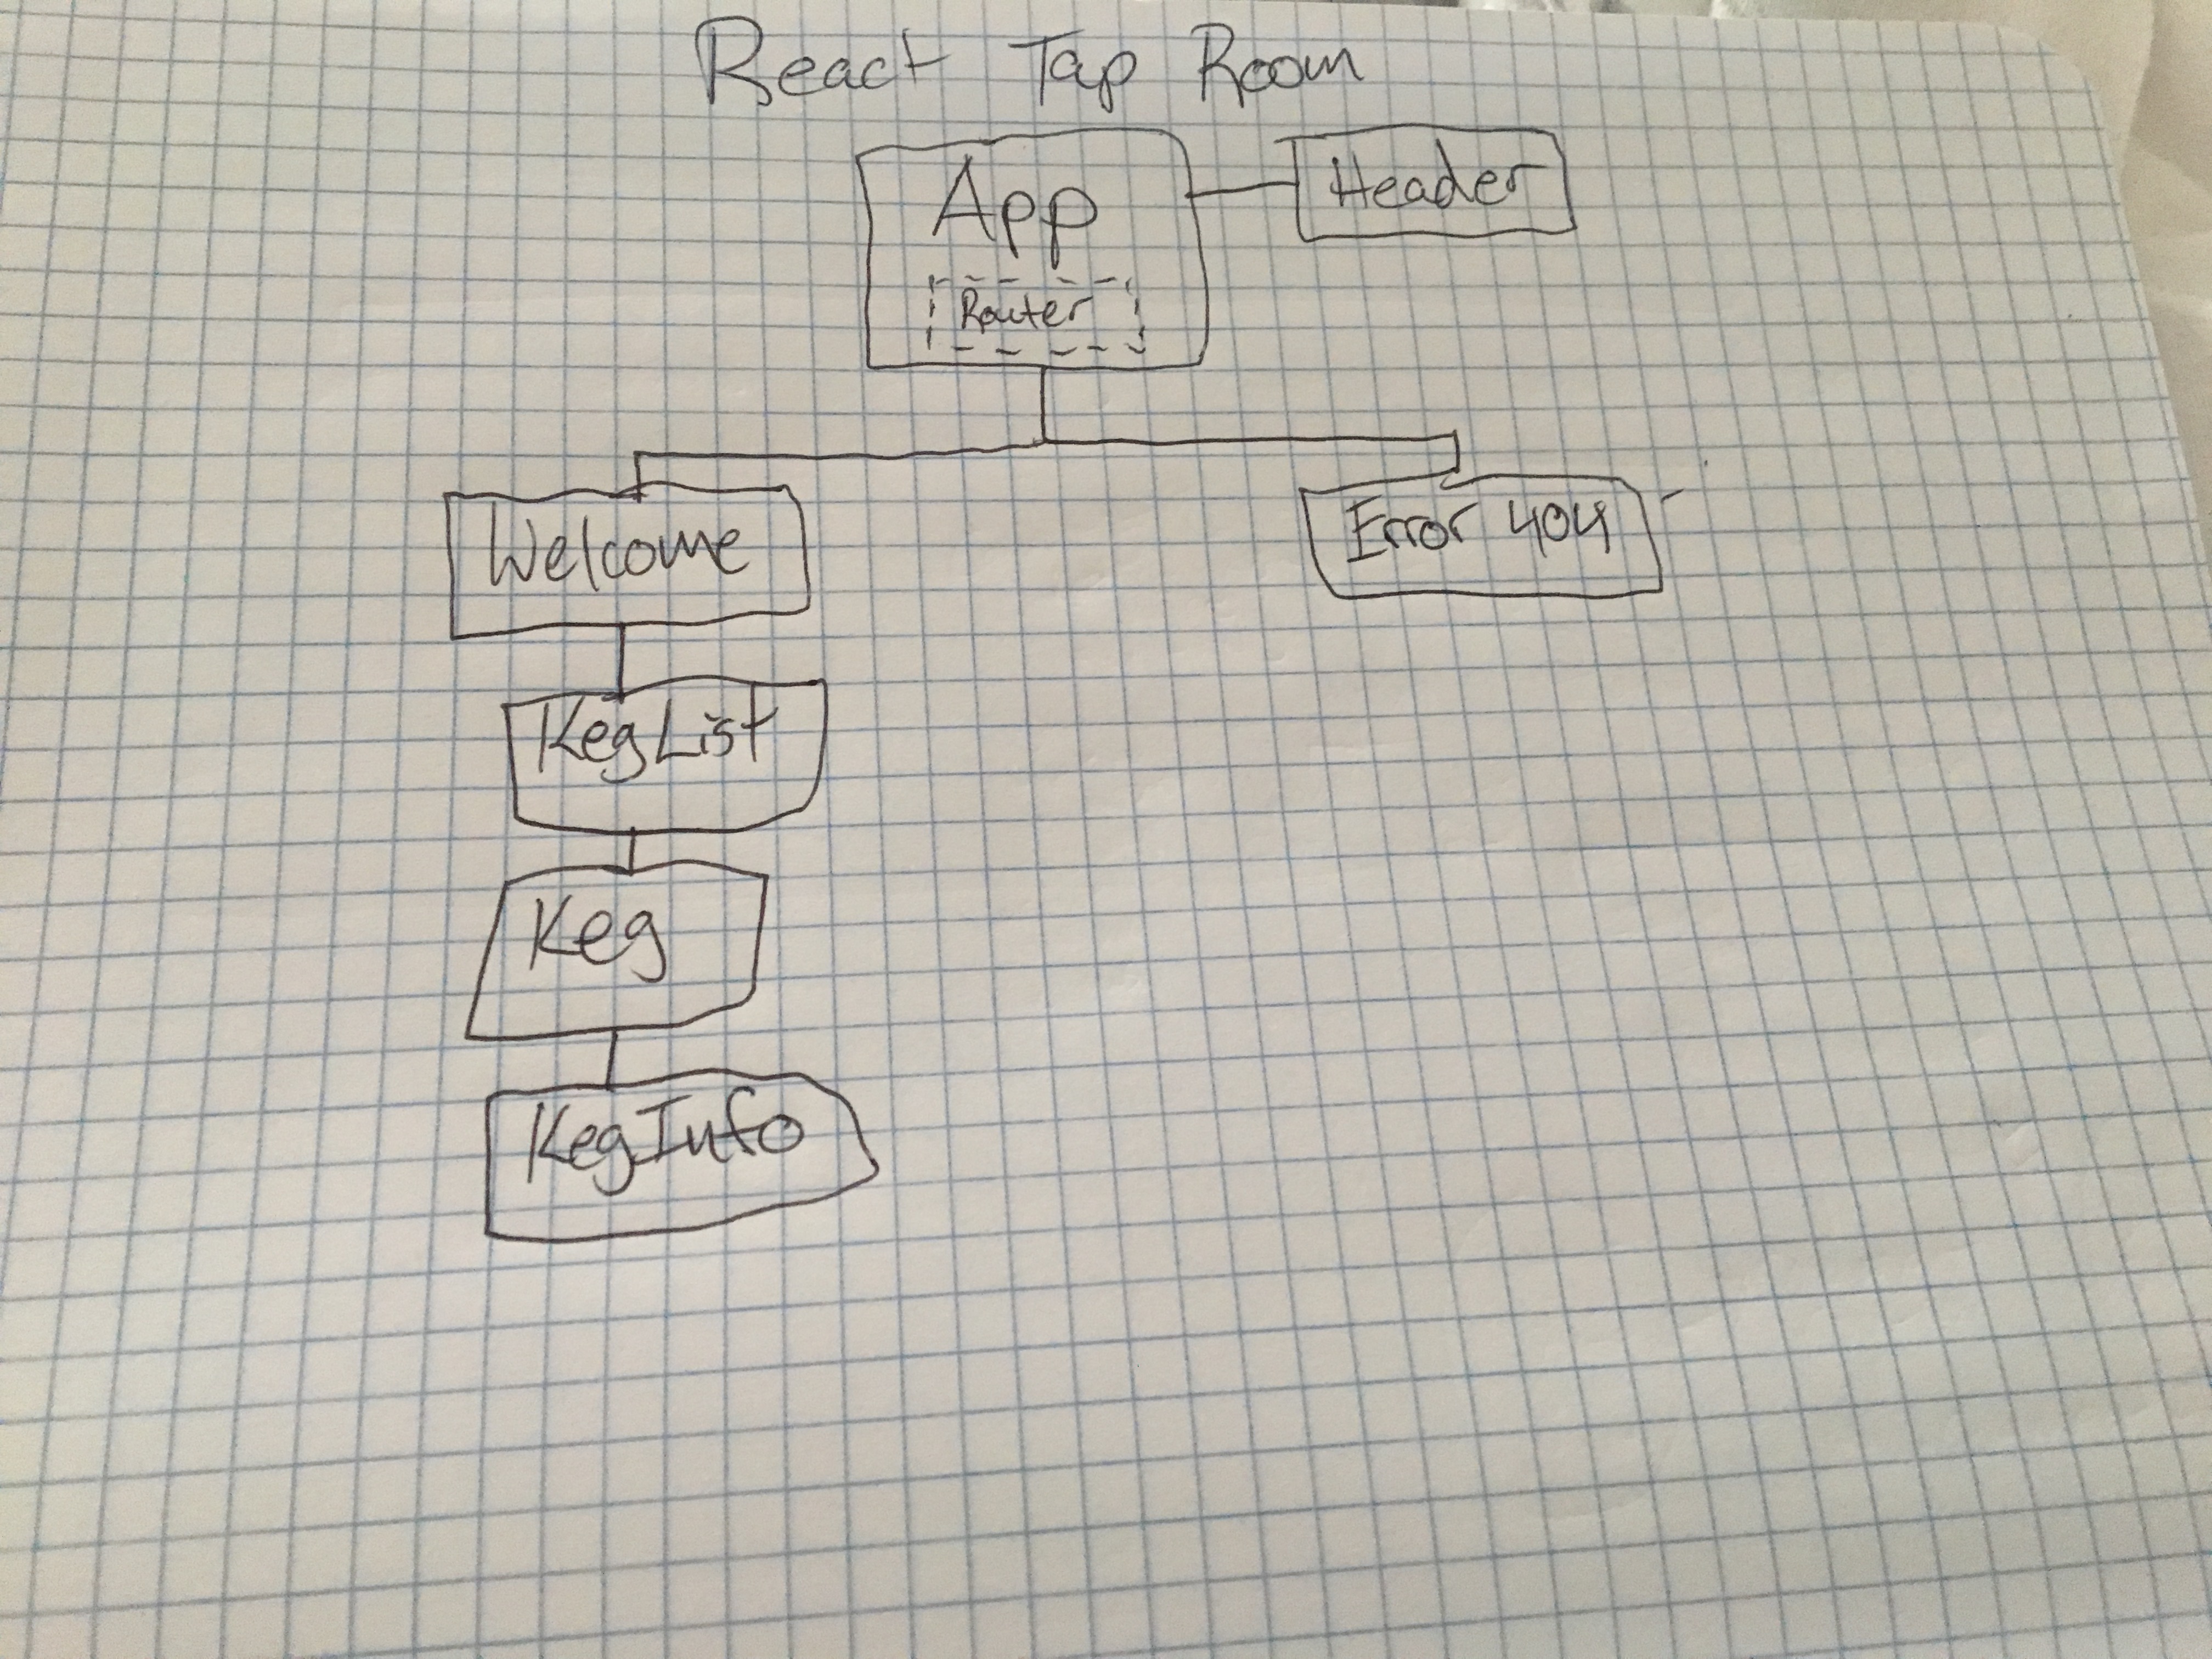 React Tap Room
App
Header
Router
Welcome
Error 404
KegList
Keg
KegInfo